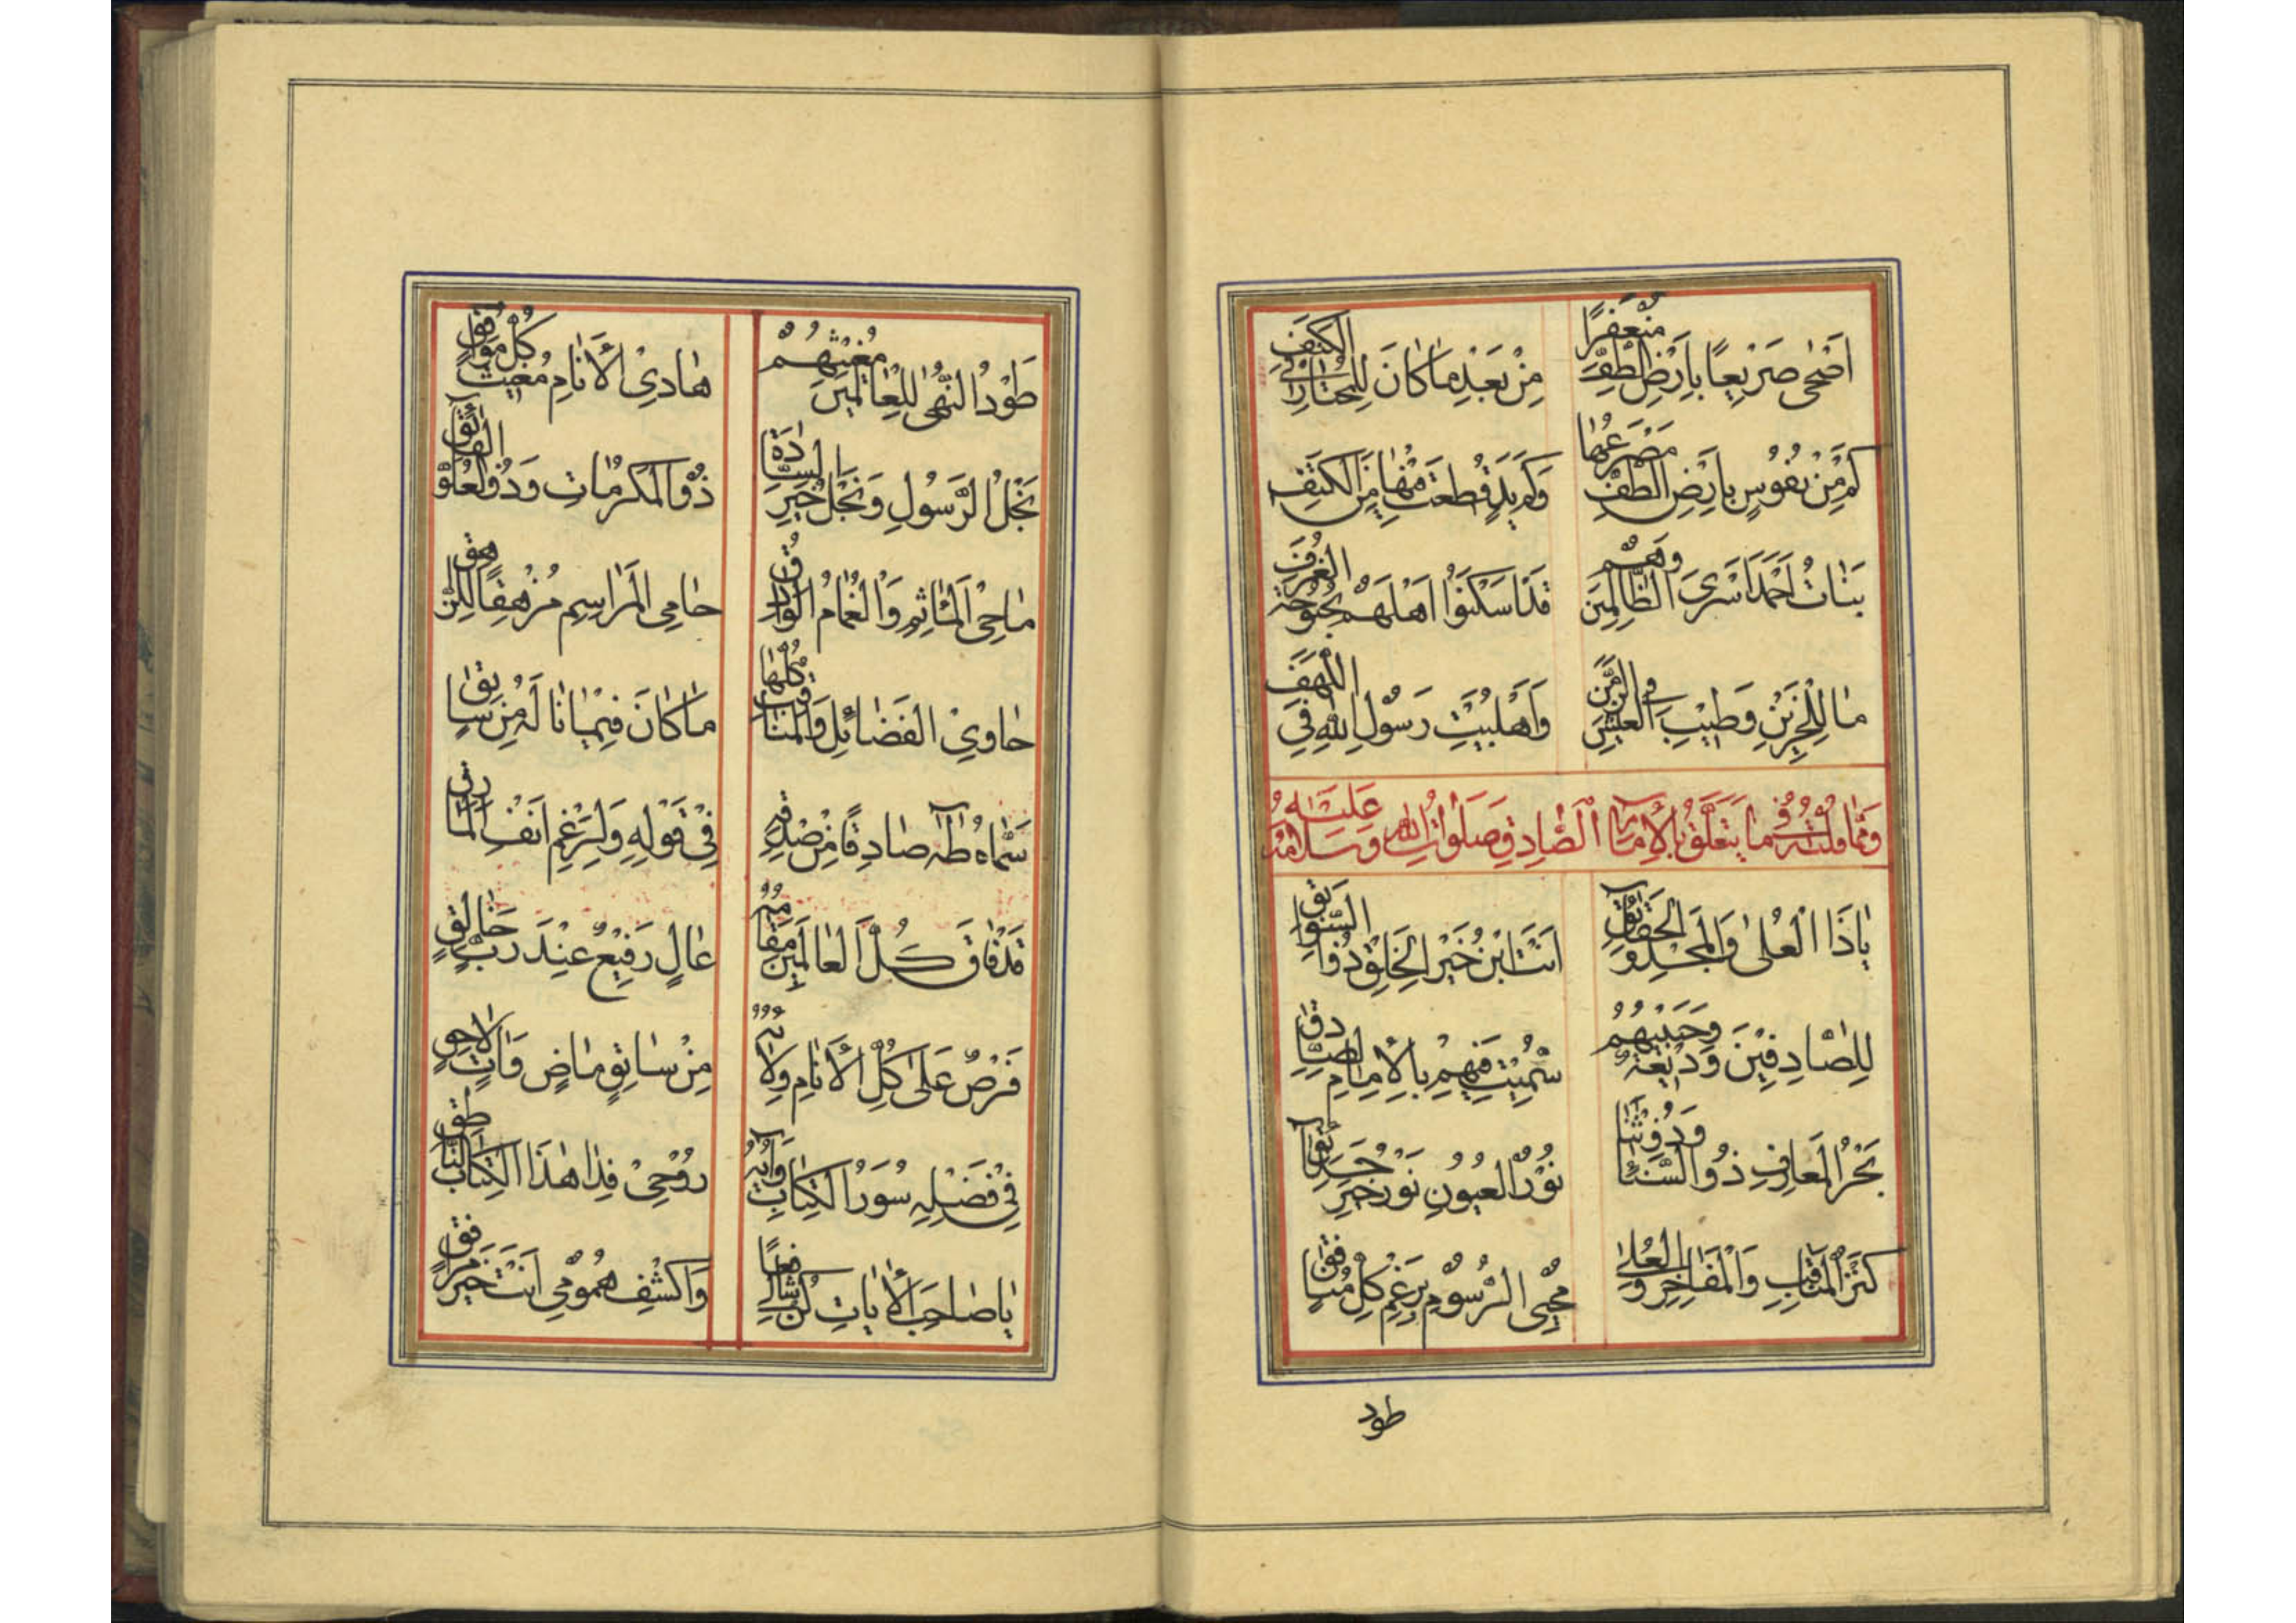 اَضْحٰى صَرِيْعًا بِاَرْضِ الطَّفِّ مُنْعَفِرًا
مِنْ بَعْدِ مٰا كٰانَ لِلْمُخْتٰارِ فِي الْكَتِفِ
كَمْ مِنْ نُفُوْسٍ بِاَرْضِ الطَّفِّ مَصْرَعُهٰا
وَكَمْ يَدٍ قُطِعَتْ مِنْهٰا مِنَ الْكَتِفِ
بَنٰاتُ اَحْمَدَ اَسْرَى الظّٰالِمِيْنَ وَهُمْ
قَدْ اَسْكَنُوْا اَهْلَهُمْ بُحْبُوْحَةَ الْغُرَفِ
مٰا لِلْحَزِيْنِ وَطِيْبِ الْعَيْشِ فِي الزَّمَنِ
وَاَهْلُبَيْتِ رَسُوْلِ اللهِ فِي اللَّهَفِ
وَمِمّٰا قُلْتُهُ فِي مٰا يَتَعَلَّقُ بِالْاِمٰامِ الصّٰادِقِ صَلَوٰاتُ اللهِ وَسَلٰامُهُ عَلَيْهِ
يٰا ذَا الْعُلٰى وَالْمَجْدِ وَالْحَقٰائِقِ
اَنْتَ ابْنُ خَيْرِ الْخَلْقِ ذُو السَّوٰابِقِ
لِلصّٰادِقِيْنَ وَدِيْعَةٌ وَحَبِيْبُهُمْ
سُمِّيْتَ فِيْهِمْ بِالْاِمٰامِ الصّٰادِقِ
بَحْرُ الْمَعٰارِفِ ذُو السَّنٰاءِ وَذُو ثَنٰا
نُوْرُ الْعُيُوْنِ نَوْرُ خَيْرِ حَدٰائِقِ
كَنْزُ الْمَنٰاقِبِ وَالْمَفٰاخِرِ وَالْعُلٰى
مُحْيِى الرُّسُوْمِ بِرَغْمِ كُلِّ مُنٰافِقِ
طود
طَوْدُ النُّهٰى لِلْعٰالَمِيْنَ مُغِيْثُهُمْ
هٰادِيْ الْاَنٰامِ مُغِيْثُ كُلِّ مُوٰافِقِ
نَجْلُ الرَّسُوْلِ وَنَجْلُ خَيْرِ السّٰادَةِ
ذُو الْمَكْرُمٰاتِ وَذُو الْعُلُوِّ الْفٰائِقِ
مٰاحِيْ الْمَئٰاثِمِ وَالْغَمٰامُ الْوٰادِقُ
حٰامِى الْمَرٰاسِمِ مُزْهِقًا لِلزّٰهِقِ
حٰاوِيْ الْفَضٰائِلِ وَالْمَنٰاقِبِ كُلِّهٰا
مٰا كٰانَ فِيْمٰا نٰالَهُ مِنْ سٰابِقِ
سَمّٰاهُ طٰهَ صٰادِقًا مِنْ صِدْقِهِ
فِيْ قَوْلِهِ وَلِرَغْمِ اَنْفِ الْمٰارِقِ
قَدْ فٰاقَ كُلَّ الْعٰالَمِيْنَ مَقٰامُهُ
عٰالٍ رَفِيْعٌ عِنْدَ رَبٍّ خٰالِقِ
فَرْضٌ عَلٰى كُلِّ الْاَنٰامِ وِلٰائُهُ
مِنْ سٰابِقٍ مٰاضٍ وَاٰتٍ لٰاحِقِ
فِيْ فَضْلِهِ سُوَرُ الْكِتٰابِ وَاٰيُهُ
رُوْحِيْ فِدٰا هٰذَا الْكِتٰابِ النّٰاطِقِ
يٰا صٰاحِبَ الْاٰيٰاتِ كُنْ لِيْ شٰافِعًا
وَاكْشِفْ هُمُوْمِيْ اَنْتَ خَيْرُ مُرٰافِقِ